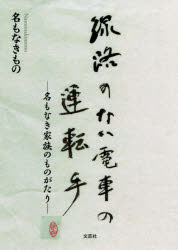 線路のない電車の
運転手
―名もなき家族のものがたり―
名もなきもの
文芸社